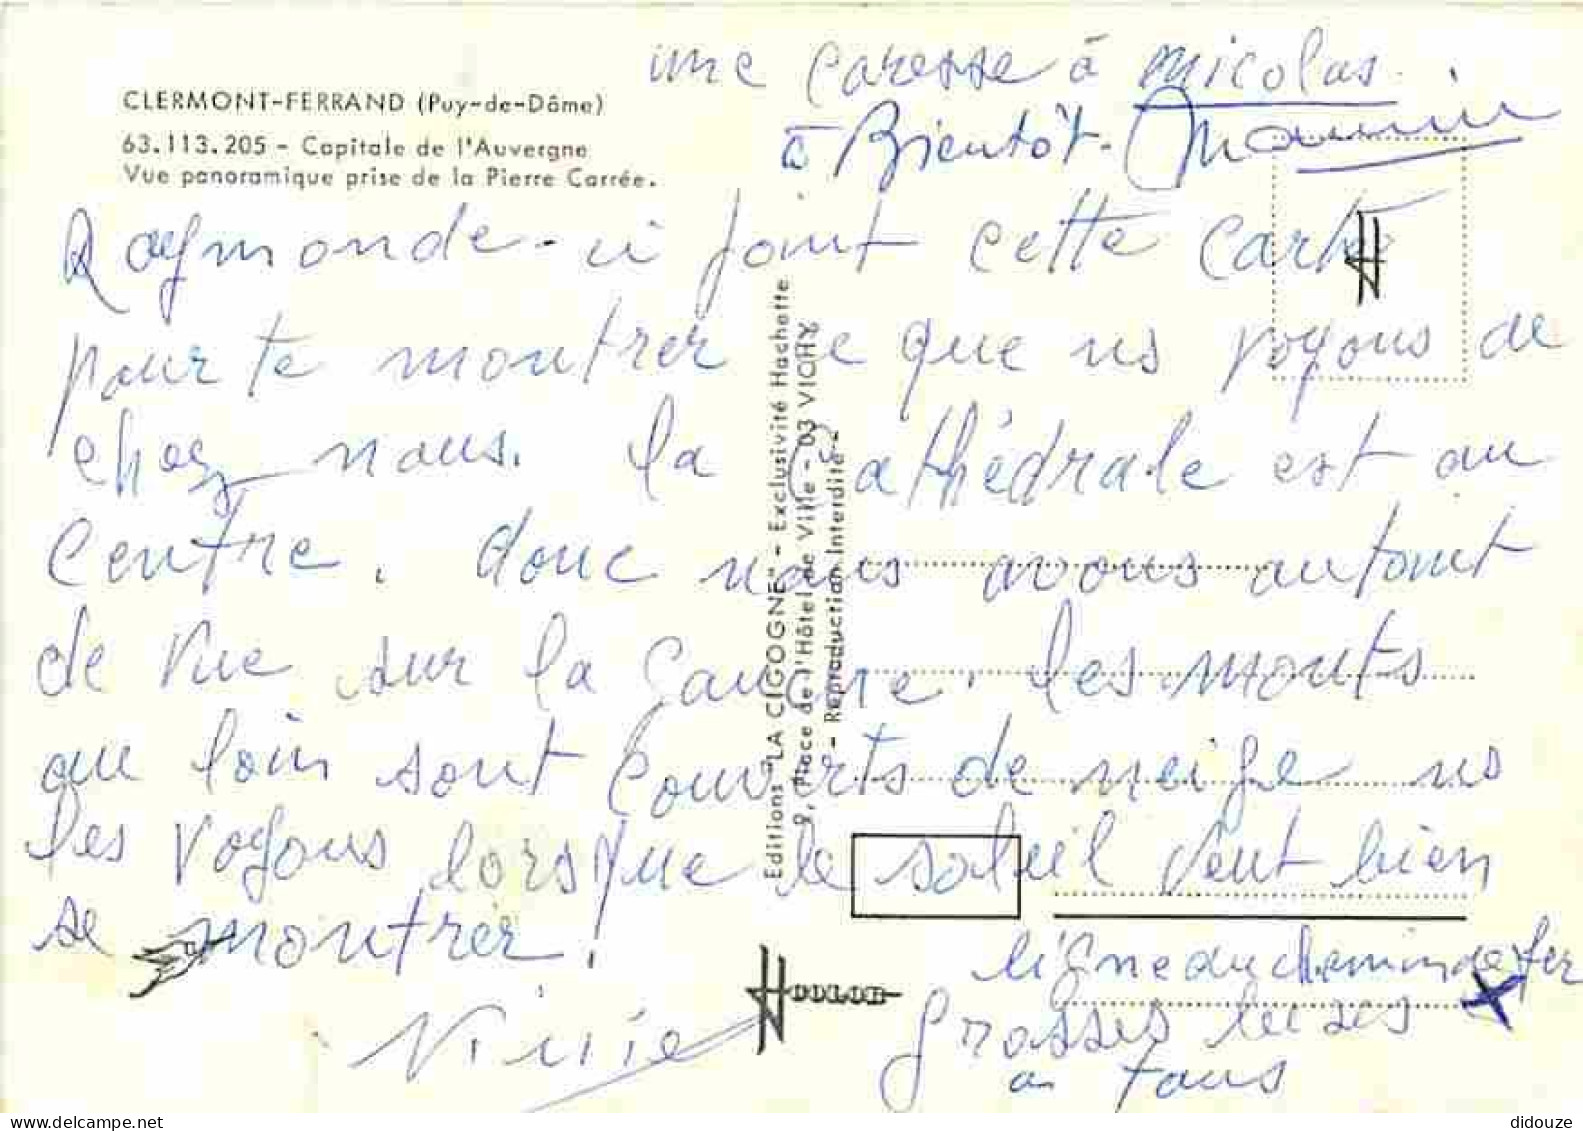 une caresse à Nicolas.
à Bientôt.
CLERMONT-FERRAND (Puy-de-Dôme)
63.113.205 - Capitale de l'Auvergne
Vue panoramique prise de la Pierre Carrée.
Raymonde - ci joint cette carte
pour te montrer ce que ns voyons de
chez nous. la Cathédrale est au
Centre. donc nous avons autant
de vue sur la gauche. les monts
au loin sont couverts de neige ns
les voyons lorsque le soleil veut bien
se montrer.
ligne du chemin de fer
Grosses bises
à tous
Editions "LA CIGOGNE" - Exclusivité Hachette
9, Place de l'Hôtel de Ville - 03 VICHY
- Reproduction Interdite -
COLOR
didouze